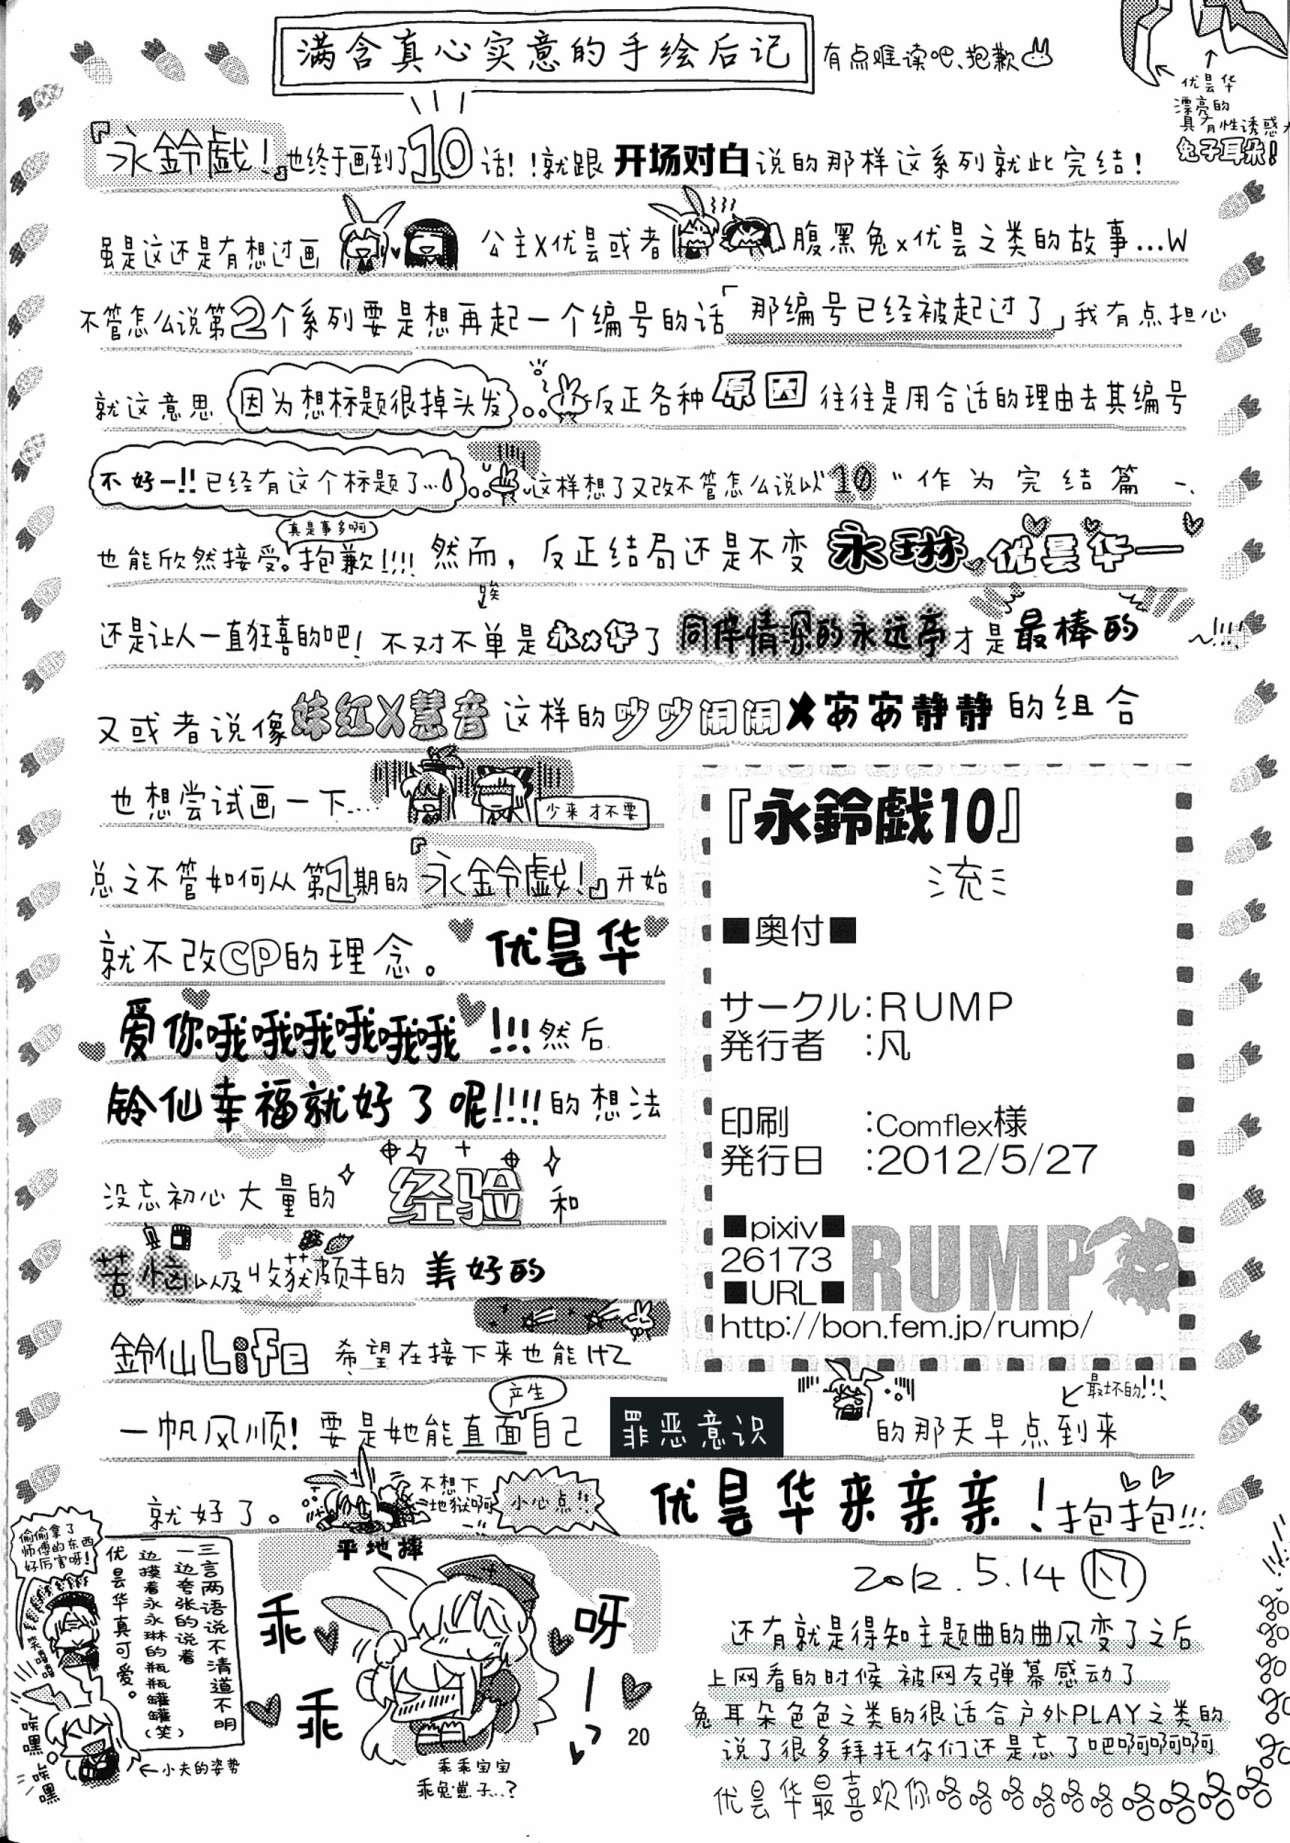 满含真心实意的手绘后记
有点难读吧、抱歉
优昙华
漂亮的
具有性诱惑力
兔子耳朵!
『永鈴戯!』也终于画到了10话!!就跟开场对白说的那样这系列就此完结!
虽是这还是有想过画 公主X优昙或者 腹黑兔x优昙之类的故事…W
不管怎么说第2个系列要是想再起一个编号的话「那编号已经被起过了」我有点担心
就这意思 因为想标题很掉头发 反正各种原因往往是用合适的理由去其编号
不好一!!已经有这个标题了… 这样想了又改不管怎么说以"10"作为完结篇
真是事多啊
也能欣然接受。抱歉!!!! 然而,反正结局还是不变 永琳 优昙华一
诶
还是让人一直狂喜的吧!不对不单是永x华了 同伴情深的永远亭才是最棒的~!!!!
又或者说像妹红X慧音这样的吵吵闹闹X安安静静的组合
也想尝试画一下…
少来才不要
总之不管如何从第1期的『永鈴戯!』开始
就不改CP的理念。 优昙华
爱你哦哦哦哦哦哦!!!然后
铃仙幸福就好了呢!!!!的想法
没忘初心大量的经验和
苦恼以及收获颇丰的美好的
鈴仙Life 希望在接下来也能
产生
最坏的!!!
一帆风顺!要是她能直面自己罪恶意识的那天早点到来
就好了。
不想下地狱啊
小心点!!
平地摔
优昙华来亲亲!抱抱!!!
『永鈴戯10』
流
■奥付■
サークル:RUMP
発行者 :凡
印刷 :Comflex様
発行日 :2012/5/27
■pixiv■
26173
■URL■
RUMP
http://bon.fem.jp/rump/
2012.5.14 凡
还有就是得知主题曲的曲风变了之后
上网看的时候 被网友弹幕感动了
兔耳朵色色之类的很适合户外PLAY之类的
说了很多拜托你们还是忘了吧啊啊啊
优昙华最喜欢你咯咯咯咯咯咯咯咯咯咯咯
偷偷拿了
师傅的东西
好厉害呀!
三言两语说不清道不明
一边夸张的说着
一边摸着永永琳的瓶瓶罐罐(笑)
优昙华真可爱。
诶嘿
诶嘿
←小夫的姿势
乖乖
呀ーっ
乖乖宝宝
乖兔崽子…?
20